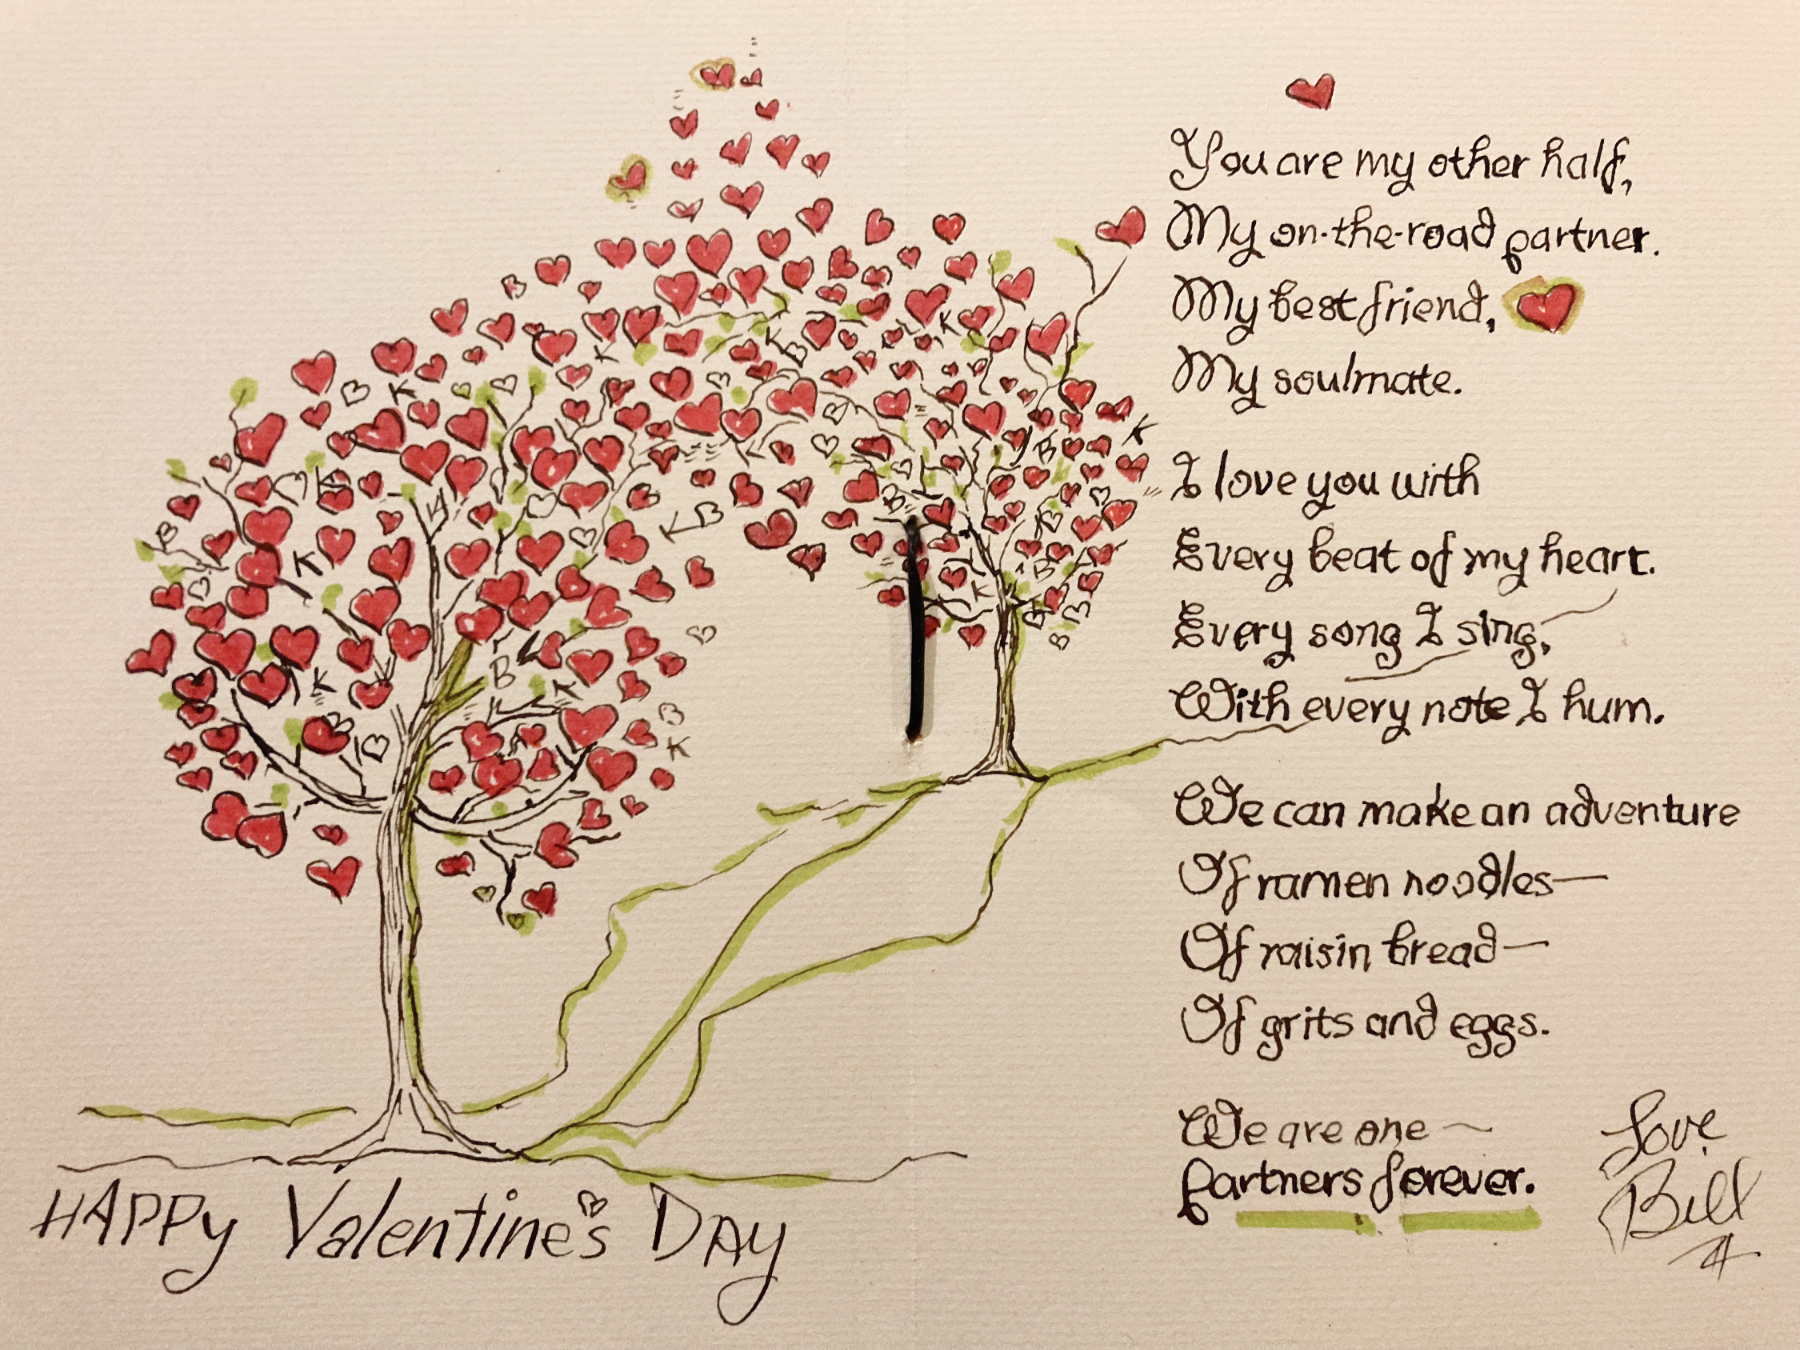 You are my other half,
My on-the-road partner.
My best friend,
My soulmate.
I love you with
Every beat of my heart.
Every song I sing,
With every note I hum.
We can make an adventure
Of ramen noodles—
Of raisin bread—
Of grits and eggs.
We are one—
Partners forever.
Love
Bill
HAPPy Valentine's DAy